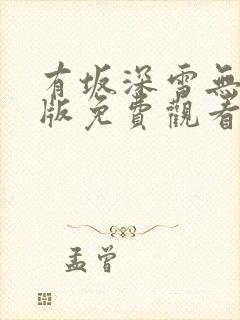 有坂深雪無
版免費觀看
孟曾